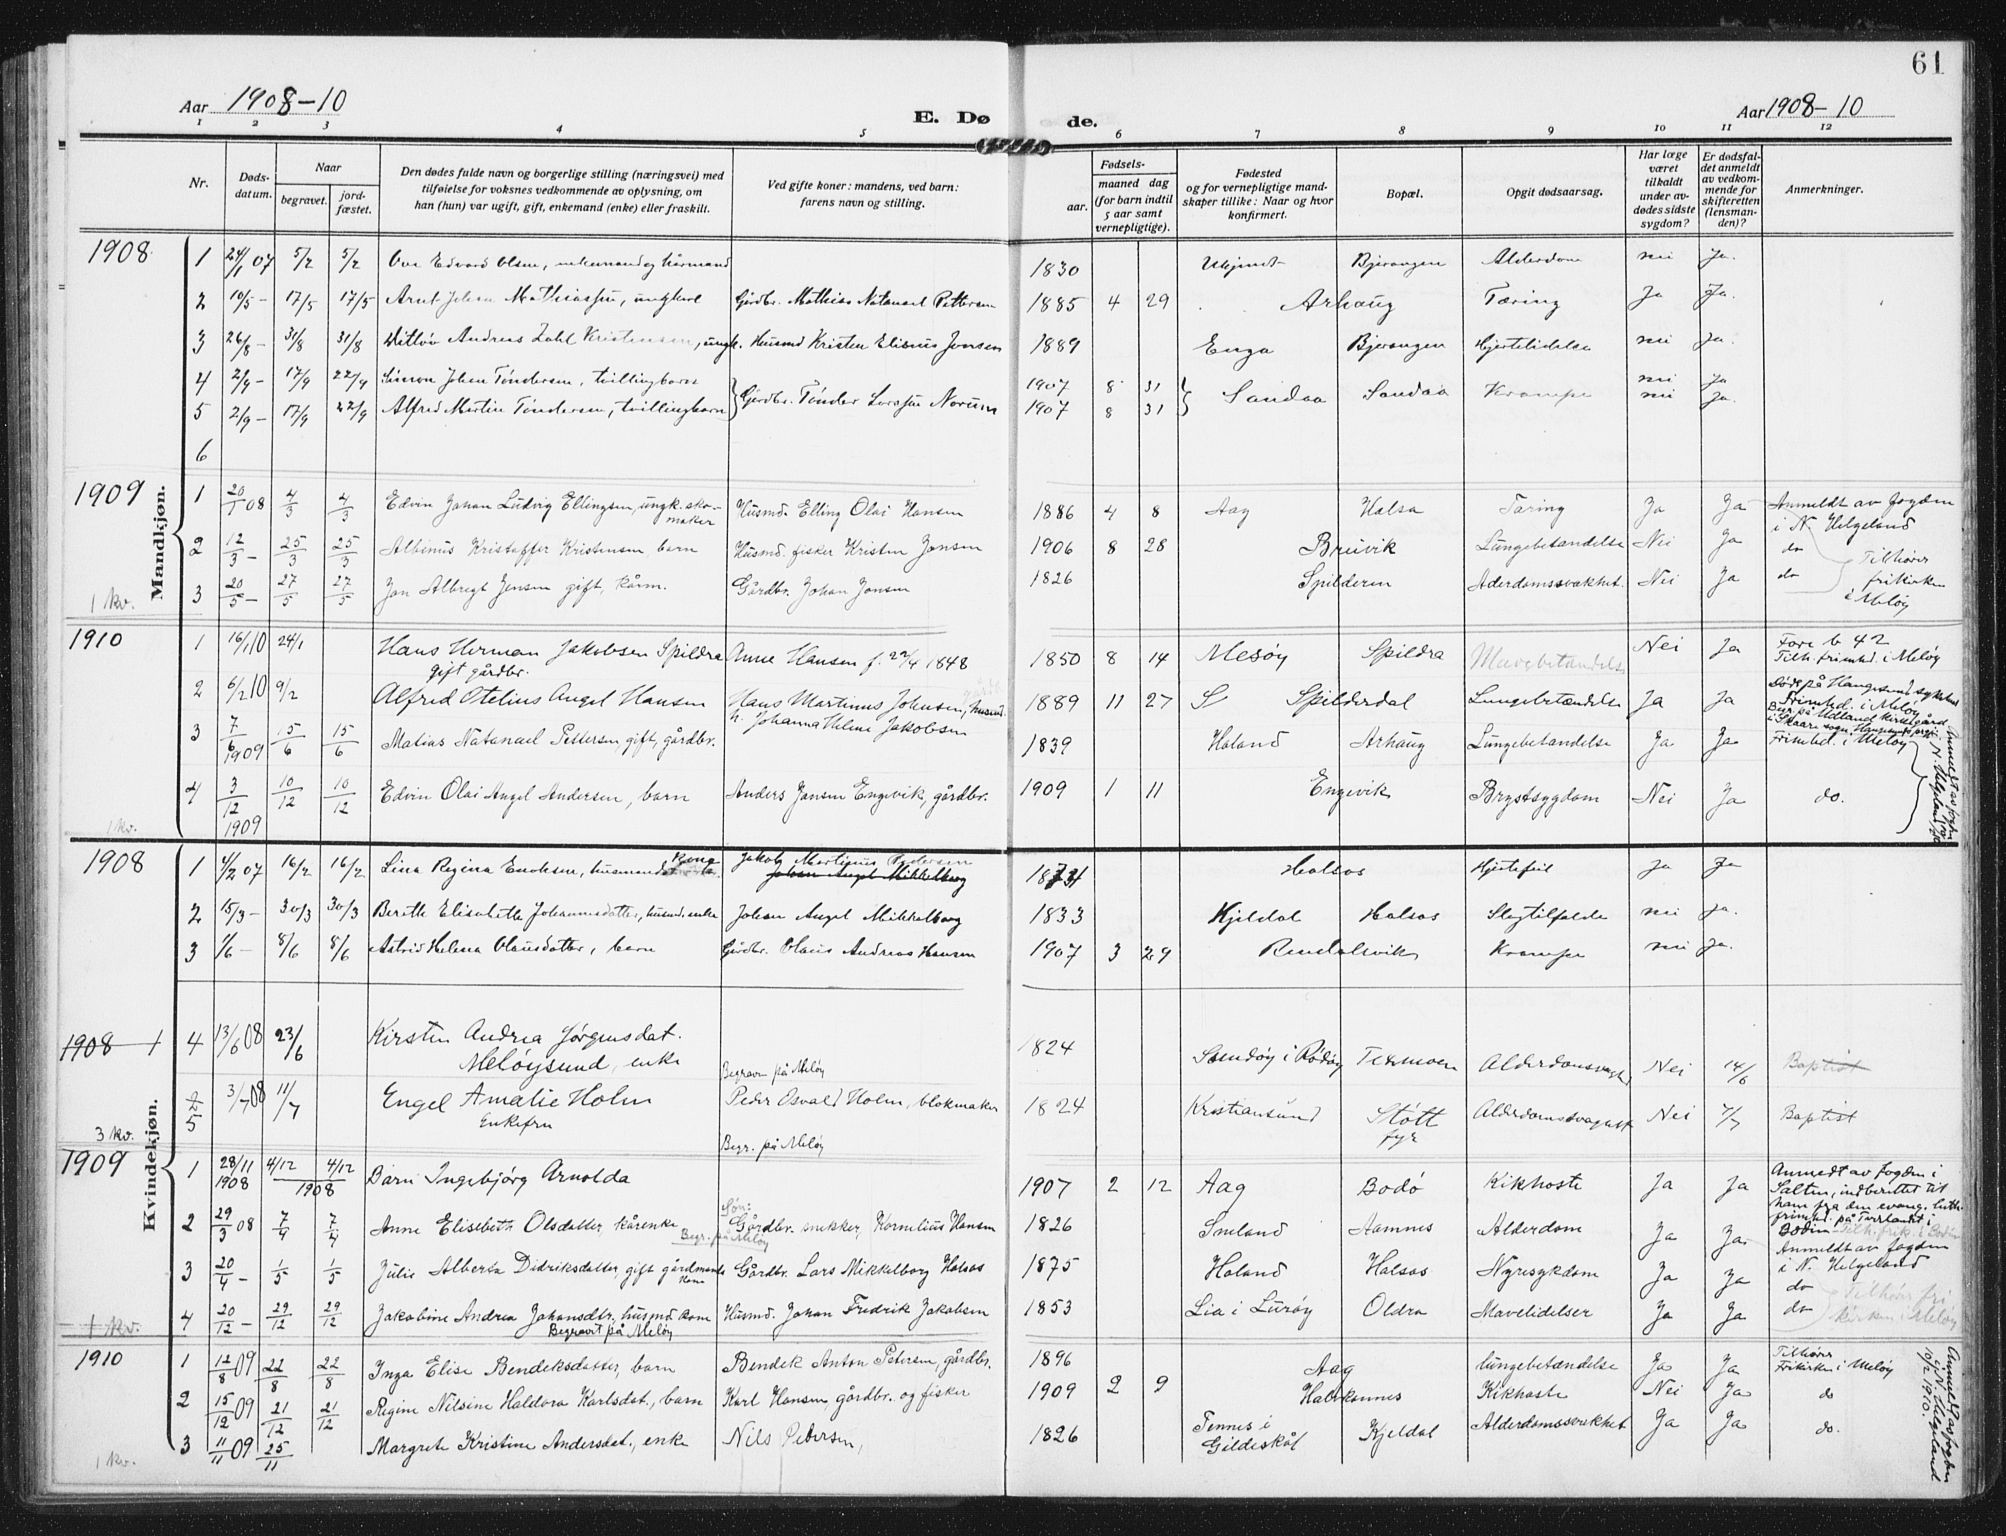 61
Aar 1908-10
E. Dø de.
Aar 1908-10
1 2 3 4 5 6 7 8 9 10 11 12
Nr.
Døds-
datum.
Naar
begravet.
jord-
fæstet.
Den dødes fulde navn og borgerlige stilling (næringsvei) med
tilføielse for voksnes vedkommende av oplysning, om
han (hun) var ugift, gift, enkemand (enke) eller fraskilt.
Ved gifte koner: mandens, ved barn:
farens navn og stilling.
Fødsels-
aar.
maaned dag
(for barn indtil
5 aar samt
vernepligtige).
Fødested
og for vernepligtige mand-
skaper tillike: Naar og hvor
konfirmert.
Bopæl.
Opgit dødsaarsag.
Har læge
været
tilkaldt
under av-
dødes sidste
sygdom?
Er dødsfal-
det anmeldt
av vedkom-
mende for
skifteretten
(lensman-
den)?
Anmerkninger.
Mandkjøn.
1908
1 24/1 07 5/2 5/2 Ove Edvard Olsen, enkemand og kårmand 1830 Ukjendt Bjerangen Alderdom nei Ja.
2 10/5 - 17/5 17/5 Arnt Johan Mathiassen, ungkarl Gårdbr. Mathias Natanael Pettersen 1885 4 29 Arhaug Tæring Ja Ja.
3 26/8 - 31/8 31/8 Ditløv Andreas Zahl Kristensen, ungk. Husmd Kristen Elisæus Jensen 1889 Enga Bjerangen Hjertelidelse nei Ja.
4 2/9 - 17/9 22/9 Simon Johan Tøndersen, tvillingbarn 1907 8 31 nei Ja
Gårdbr. Tønder Larssen Norum Sandaa Sandaa Krampe
5 2/9 - 17/9 22/9 Alfred Martin Tøndersen, tvillingbarn 1907 8 31 nei Ja.
6
1909
1 20/1 08 4/3 4/3 Edvin Johan Ludvig Ellingsen, ungk. sko-
maker Husmd. Elling Olai Hansen 1886 4 8 Aag Halsa Tæring Ja Ja Anmeldt av fogden
i N. Helgeland
2 12/3 - 25/3 25/3 Albinus Kristoffer Kristensen barn Husmd. fisker Kristen Jensen 1906 8 28 Bruvik Lungebetændelse Nei Ja do
Tilhører
frikirken
i Meløy
3 20/5 - 27/5 27/5 Jan Albregt Jensen gift, kårm. Gårdbr. Johan Jensen 1826 Spilderen Alderdomssvakhet. Nei Ja do
1 kv.
1910
1 16/1 10 24/1 Hans Herman Jakobsen Spildra
gift gårdbr. Anne Hansen f. 22/4 1848 1850 8 14 Mesøy Spildra Mavebetændelse Nei Ja Fore b 42
Tilh. frimhd. i Meløy
2 6/2 10 9/2 Alfred Otelius Angel Hansen Hans Martinus Johnsen, husmd.
h. Johanna Helene Jakobsen 1889 11 27 S Spilderdal Lungebetændelse Ja Ja Døde på Haugesund sykehus
Frimhd. i Meløy
Begr. på Udland kirkegård
i Skaare sogn
3 7/6 1909 15/6 15/6 Matias Natanael Pettersen gift, gårdbr. 1839 Høland Arhaug Lungebetændelse Ja Ja Frimhd. i Meløy
4 3/12 1909 10/12 10/12 Edvin Olai Angel Andersen, barn Anders Jensen Engevik, gårdbr. 1909 1 11 Engevik Brystsygdom Nei Ja do.
1 kv.
Kvindekjøn.
1908
1 4/2 07 16/2 16/2 Lina Regina Enoksen, husmands kone Jakob Martinus Pedersen
Johan Angel Mikkelborg 1874 Halsos Hjertefeil Ja Ja
2 15/3 - 30/3 30/3 Berethe Elisabeth Johannesdatter, husmd. enke Johan Angel Mikkelborg 1833 Kjeldal Halsos Slagtilfælde nei Ja.
3 1/6 - 8/6 8/6 Astrid Helena Olausdatter, barn Gårdbr. Olaus Andreas Hansen 1907 3 29 Rendalsvik Krampe nei Ja.
1908 1
4 13/6 08 23/6 Kirsten Andrea Jørgensdat.
Meløysund, enke
Begravn på Meløy 1824 Sandøy i Rødøy Texmoen Alderdomsvaghed Nei 14/6 Baptist
2
5 3/7 08 11/7 Engel Amalie Holm
Enkefru Peder Osvald Holm, blokmaker
Begr. på Meløy 1824 Kristiansund Støtt
fyr Alderdomssvaghet Nei 7/7 Baptist
3 kv.
1909
1 28/11 1908 4/12 4/12 1908 Barn Ingebjørg Arnolda 1907 2 12 Aag Bodø Kikhoste Ja Ja Anmeldt av fogden i
Salten, indberettet til
ham fra den evang. luth.
frimhd. på Tverlandet i
Bodin Tilh. frik. i Bodin
2 29/3 08 7/4 7/4 Anne Elisebeth Olsdatter, kårenke
Begr. på Meløy Søn:
Gårdbr. snekker, Kornelius Hansen 1826 Smeland Aamnes Alderdom Ja Ja
3 20/4 - 1/5 1/5 Julie Alberta Didriksdatter gift gårdmands
kone Gårdbr. Lars Mikkelborg Halsos 1875 Høland Halsos Nyresykdom Ja Ja Anmeldt av fogden
i N. Helgeland
do
4 20/12 - 29/12 29/12 Jakobine Andrea Johansdtr. husmd. kone
Begravet på Meløy Husmd. Johan Fredrik Jakobsen 1853 Lia i Lurøy Oldra Mavelidelser Ja Ja do Tilhører fri
kirken i Meløy
1 kv.
1910
1 12/8 09 22/8 22/8 Inga Elise Bendeksdatter, barn Bendek Anton Petersen, gårdbr. 1896 Aag lungebetændelse Ja Ja Tilhører
Frikirken i Meløy
2 15/12 09 21/12 21/12 Regine Nilsine Haldora Karlsdat., barn Karl Hansen gårdbr. og fisker 1909 2 9 Halvkannes Kikhoste Nei Ja do
3 11/11 09 25/11 Margrete Kristine Andersdat., enke Nils Pedersen, 1826 Tennes i
Gildeskål Kjeldal Alderdomssvakhet Ja Ja do.
1 kv.
Anmeldt av fogden
i N. Helgeland
10/2 1910.